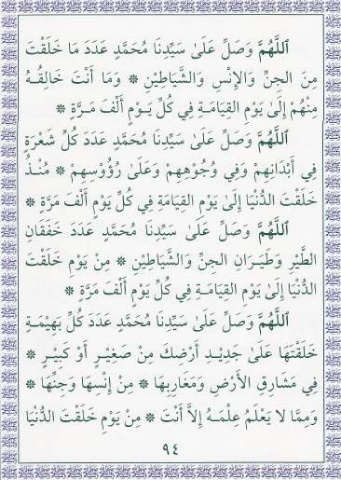 ٱللَّهُمَّ وَصَلِّ عَلَىٰ سَيِّدِنَا مُحَمَّدٍ عَدَدَ مَا خَلَقْتَ
مِنَ الجِنِّ وَالإِنْسِ وَالشَّيَاطِيْنِ * وَمَا أَنْتَ خَالِقُهُ
مِنْهُمْ إِلَىٰ يَوْمِ القِيَامَةِ فِي كُلِّ يَوْمٍ أَلْفَ مَرَّةٍ *
ٱللَّهُمَّ وَصَلِّ عَلَىٰ سَيِّدِنَا مُحَمَّدٍ عَدَدَ كُلِّ شَعْرَةٍ
فِي أَبْدَانِهِمْ وَفِي وُجُوْهِهِمْ وَعَلَىٰ رُؤُوْسِهِمْ * مُنْذُ
خَلَقْتَ الدُّنْيَا إِلَىٰ يَوْمِ القِيَامَةِ فِي كُلِّ يَوْمٍ أَلْفَ مَرَّةٍ *
ٱللَّهُمَّ وَصَلِّ عَلَىٰ سَيِّدِنَا مُحَمَّدٍ عَدَدَ خَفَقَانِ
الطَّيْرِ وَطَيَرَانِ الجِنِّ وَالشَّيَاطِيْنِ * مِنْ يَوْمِ خَلَقْتَ
الدُّنْيَا إِلَىٰ يَوْمِ القِيَامَةِ فِي كُلِّ يَوْمٍ أَلْفَ مَرَّةٍ *
ٱللَّهُمَّ وَصَلِّ عَلَىٰ سَيِّدِنَا مُحَمَّدٍ عَدَدَ كُلِّ بَهِيْمَةٍ
خَلَقْتَهَا عَلَىٰ جَدِيْدِ أَرْضِكَ مِنْ صَغِيْرٍ أَوْ كَبِيْرٍ *
فِي مَشَارِقِ الأَرْضِ وَمَغَارِبِهَا * مِنْ إِنْسِهَا وَجِنِّهَا *
وَمِمَّا لَا يَعْلَمُ عِلْمَهُ إِلاَّ أَنْتَ * مِنْ يَوْمِ خَلَقْتَ الدُّنْيَا
٩٤